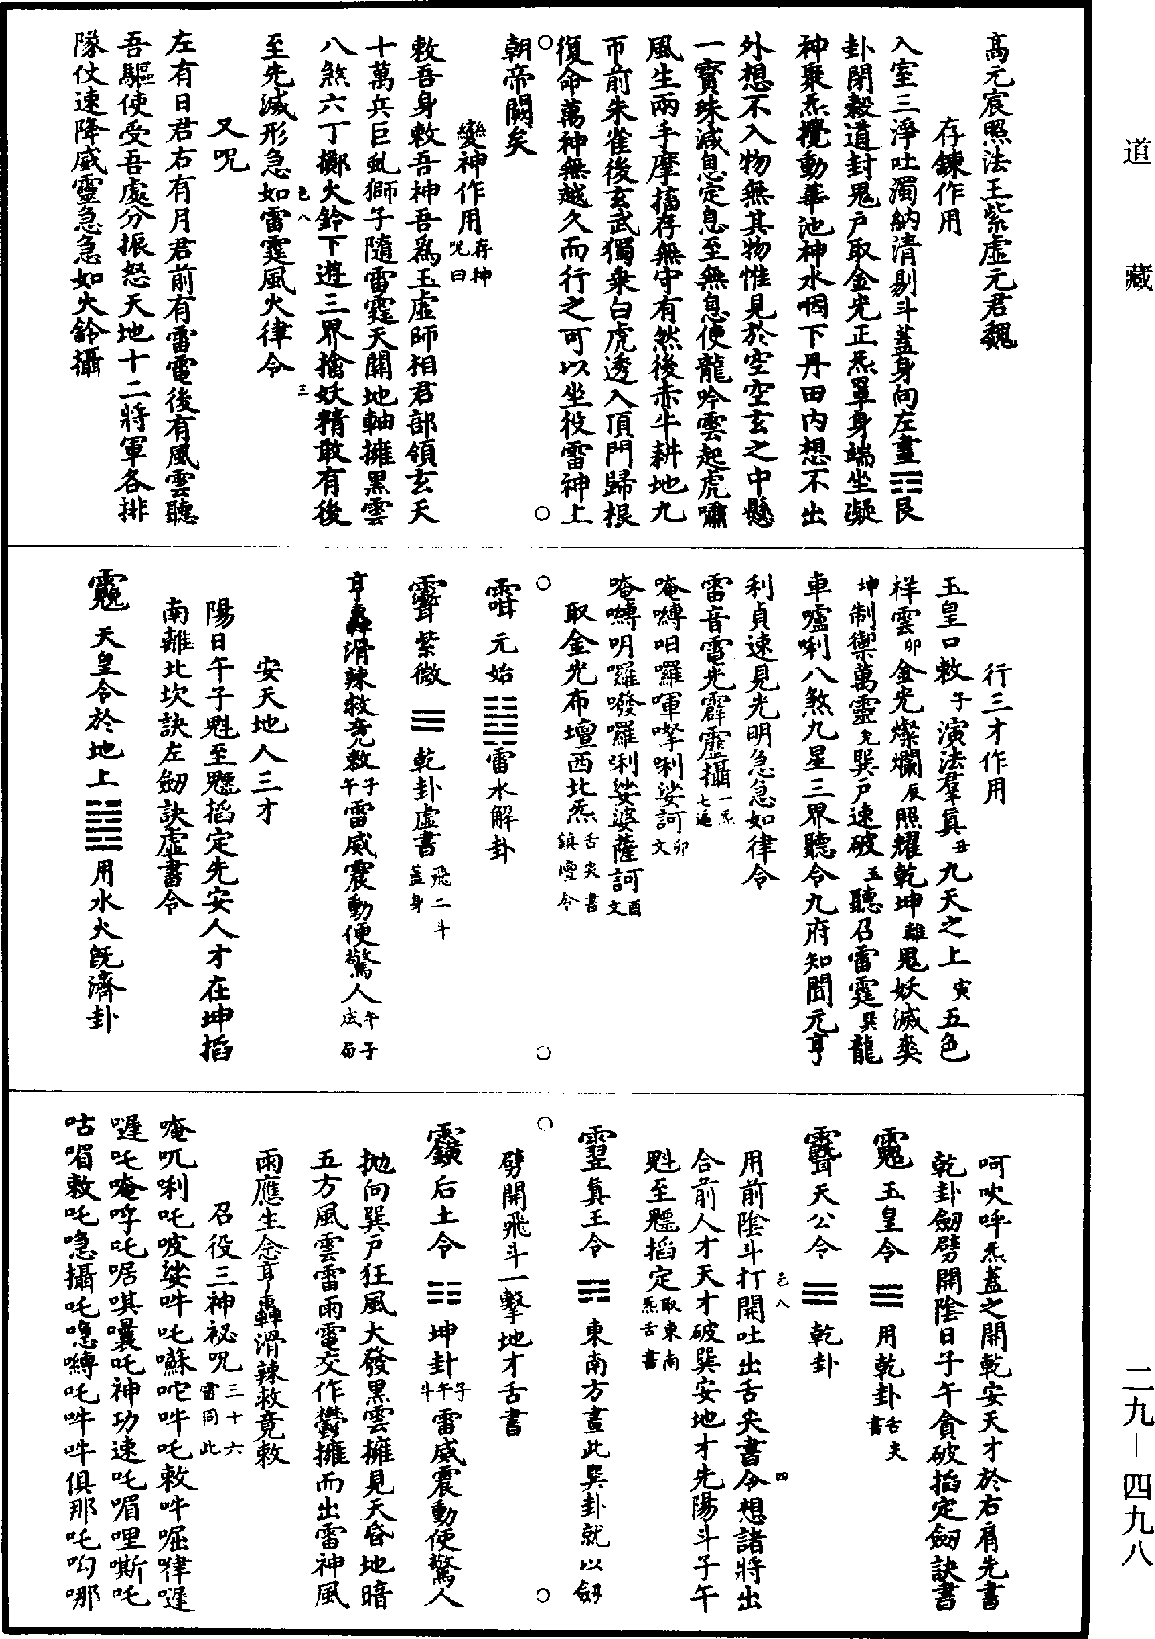 道藏
高元宸照法王紫虛元君魏
存鍊作用
入室三淨吐濁納清剔斗蓋身向左畫☶艮
卦閉穀道封鬼戶取金光正炁罩身端坐凝
神聚炁攪動華池神水咽下丹田內想不出
外想不入物無其物惟見於空空玄之中懸
一寶珠減息定息至無息使龍吟雲起虎嘯
風生兩手摩擂存無守有然後赤牛耕地九
帀前朱雀後玄武獨乘白虎透入頂門歸根
復命萬神無越久而行之可以坐役雷神上
朝帝闕矣
變神作用存神咒曰
敕吾身敕吾神吾為玉虛師相君部領玄天
十萬兵巨虬獅子隨雷霆天關地軸擁黑雲
八煞六丁擲火鈴下遊三界擒妖精敢有後
色八 三
至先滅形急如雷霆風火律令
又咒
左有日君右有月君前有雷電後有風雲聽
吾驅使受吾處分振怒天地十二將軍各排
隊仗速降威靈急急如火鈴攝
行三才作用
玉皇口敕子演法羣真丑九天之上寅五色
祥雲卯金光燦爛辰照耀乾坤離鬼妖滅爽
坤制禦萬靈兌巽戶速破玉聽召雷霆巽龍
車嚧唎八煞九星三界聽令九府知聞元亨
利貞速見光明急急如律令
雷音電光霹靂攝一炁七遍
唵嚩呾囉㖮㘄唎娑訶卯文
唵嚩明囉嘬囉唎娑婆薩訶酉文
取金光布壇西北炁舌尖書鎮壇令
元始䷧雷水解卦
紫微☰乾卦虛書飛二斗蓋身
亨轟滑辣救竟敕子午雷威震動便驚人子午戌酉
安天地人三才
陽日午子魁至魒掐定先安人才在坤掐
南離北坎訣左劒訣虛書令
天皇令於地上䷾用水火既濟卦
呵吹呼炁蓋之開乾安天才於右肩先書
乾卦劒劈開陰日子午貪破掐定劒訣書
玉皇令☰用乾卦舌尖書
天公令☰乾卦
用前陰斗打開吐出舌尖書令想諸將出
色八 四
合前人才天才破巽安地才先陽斗子午
魁至魒掐定取東南炁舌書
真王令☴東南方畫此巽卦就以劒
劈開飛斗一擊地才舌書
后土令☷坤卦子午斗雷威震動便驚人
拋向巽戶狂風大發黑雲擁見天昏地暗
五方風雲雷雨電交作鬱擁而出雷神風
雨應生念亨轟滑辣救竟敕
召役三神祕咒三十六雷同此
唵吼唎吒哎娑吽吒囌咜吽吒敕吽啒嘩𡄸
𡄸吒唵哼吒啹唭囔吒神功速吒嵋哩嘶吒
咕嵋敕吒嗯攝吒嗯嚩吒吽吽俱那吒呴哪
二九—四九八